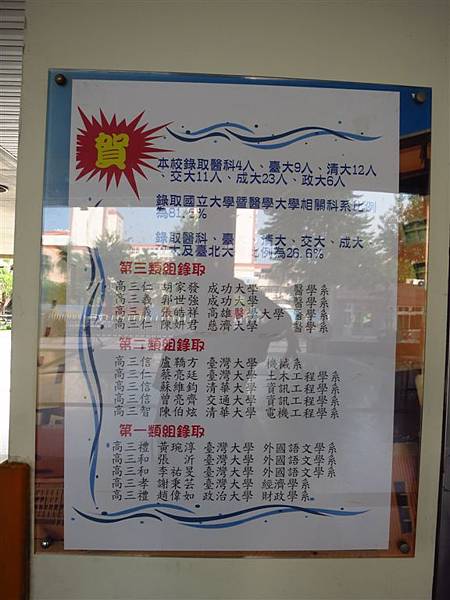 賀
本校錄取醫科4人、臺大9人、清大12人
、交大11人、成大23人、政大6人
錄取國立大學暨醫學大學相關科系比例
為81.5%
錄取醫科、臺 清大、交大、成大、
大及臺北大 比例為26.6%
第三類組錄取
高三仁 胡家發 成功大學 醫學系
高三義 郭世強 成功大學 醫學系
高三義 張皓祥 高雄醫學大學 醫學系
高三仁 陳妍君 慈濟大學 醫學系
第二類組錄取
高三信 盧鞽方 臺灣大學 機械系
高三仁 蔡亮廷 臺灣大學 土木工程學系
高三信 蘇維鈞 清華大學 資訊工程學系
高三信 曾亮齊 交通大學 資訊工程學系
高三智 陳伯炫 清華大學 電機工程學系
第一類組錄取
高三禮 黃琬淳 臺灣大學 外國語文學系
高三和 張沂 臺灣大學 外國語文學系
高三和 李祐旻 臺灣大學 外國語文學系
高三孝 謝秉芸 臺灣大學 經濟學系
高三禮 趙偉如 政治大學 財政學系